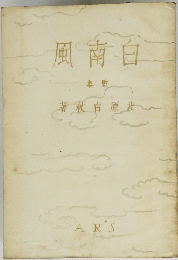 風南白
歌集
著秋白原北
ARS